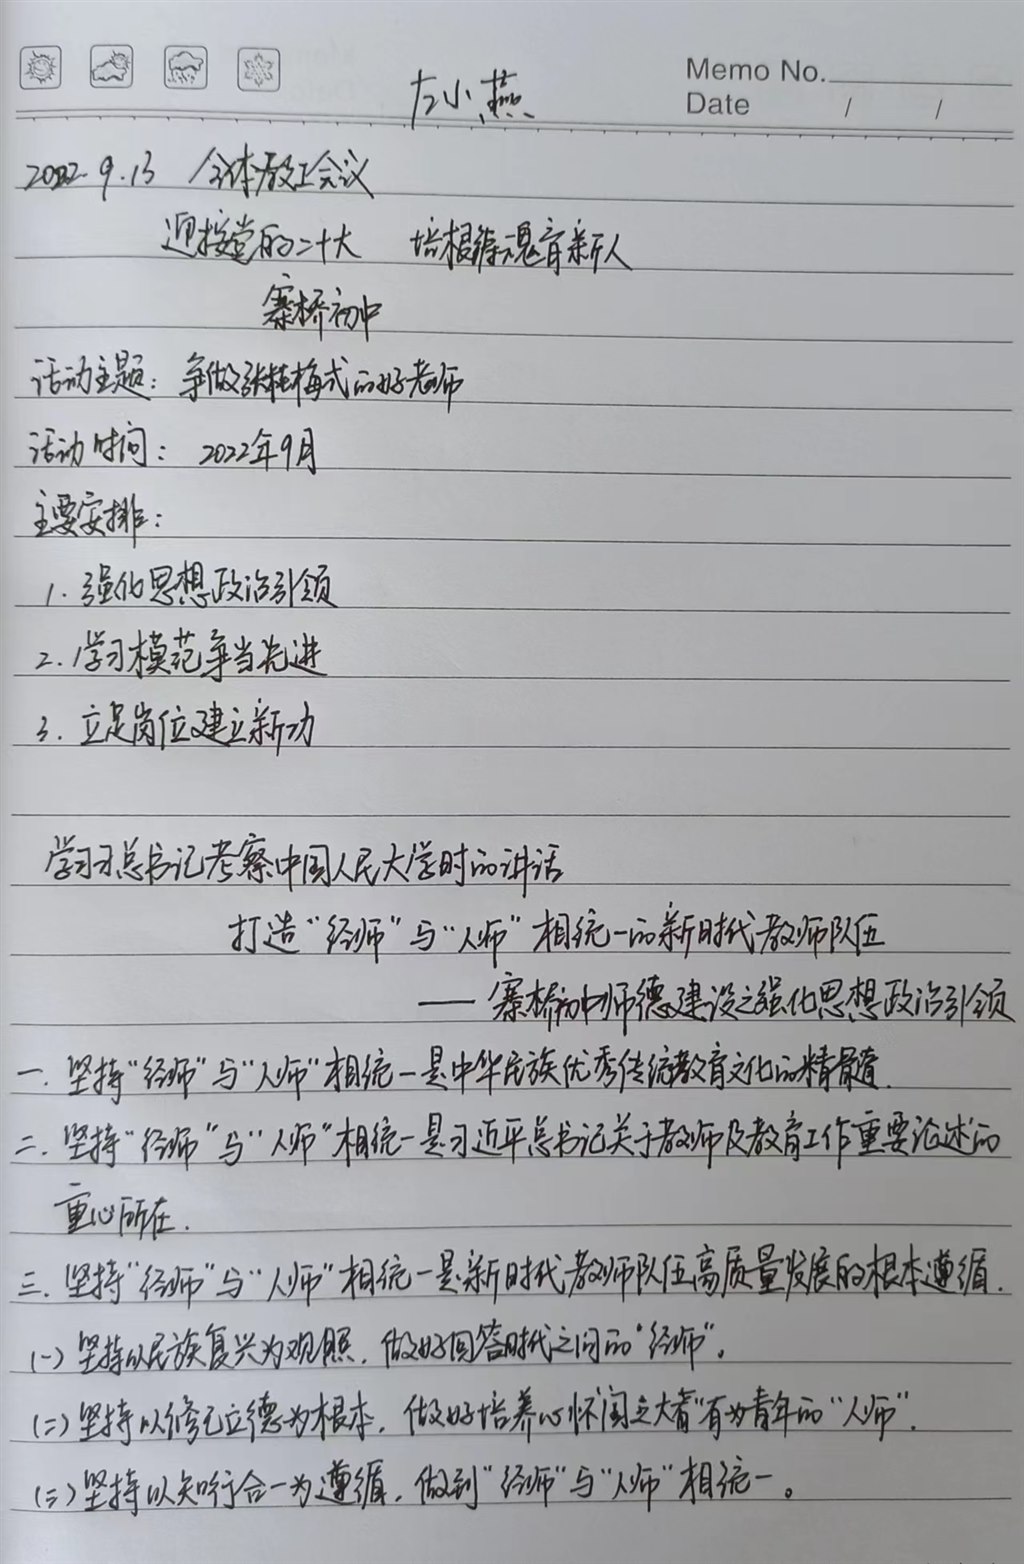 Memo No.
左小燕
Date / /
2022.9.13 全体教工会议
迎接党的二十大 培根铸魂育新人
寨桥初中
活动主题：争做张桂梅式的好老师
活动时间：2022年9月
主要安排：
1. 强化思想政治引领
2. 学习模范争当先进
3. 立足岗位建立新功
学习习总书记考察中国人民大学时的讲话
打造“经师”与“人师”相统一的新时代教师队伍
—— 寨桥初中师德建设之强化思想政治引领
一. 坚持“经师”与“人师”相统一是中华民族优秀传统教育文化的精髓.
二. 坚持“经师”与“人师”相统一是习近平总书记关于教师及教育工作重要论述的
重心所在.
三. 坚持“经师”与“人师”相统一是新时代教师队伍高质量发展的根本遵循.
(一) 坚持以民族复兴为观照, 做好回答时代之问的“经师”.
(二) 坚持以修己立德为根本, 做好培养心怀“国之大者”有为青年的“人师”.
(三) 坚持以知行合一为遵循, 做到“经师”与“人师”相统一。